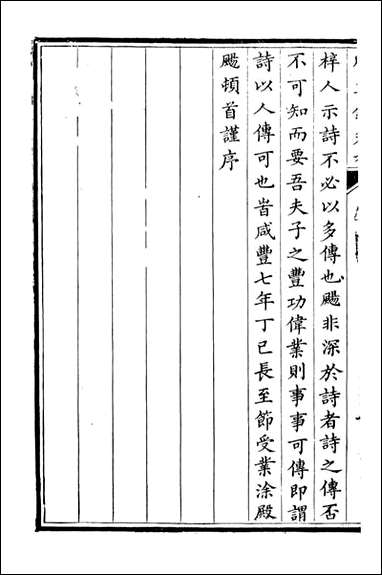 梓人示詩不必以多傳也颺非深於詩者詩之傳否
不可知而要吾夫子之豐功偉業則事事可傳即謂
詩以人傳可也旹咸豐七年丁巳長至節受業涂殿
颺頓首謹序